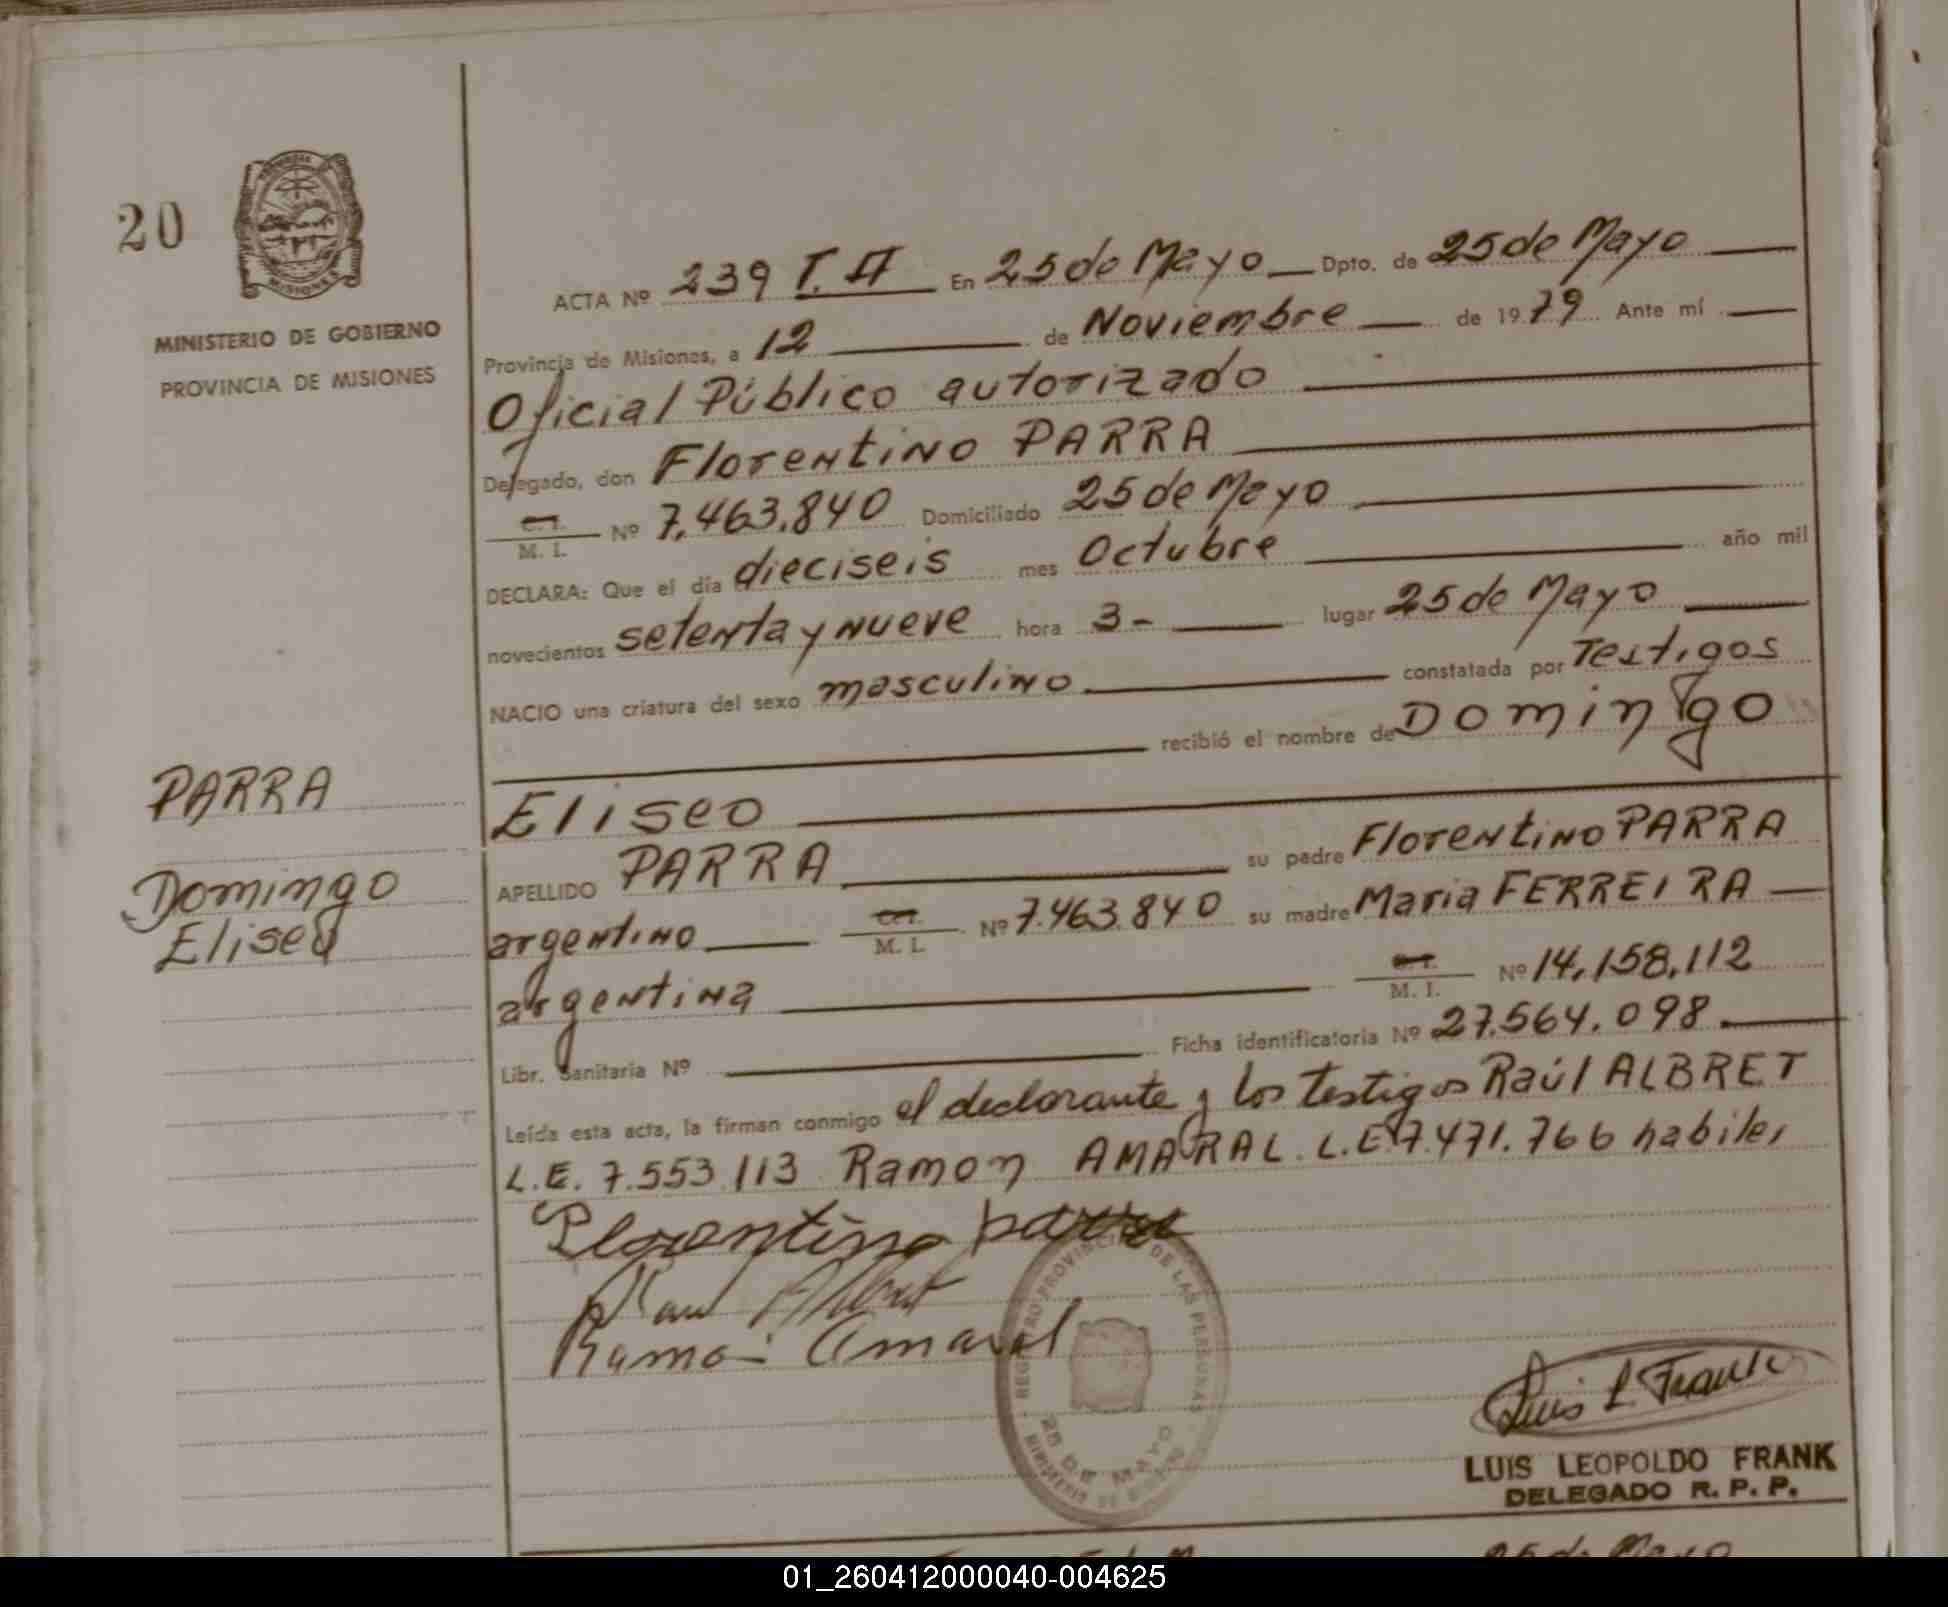 20
MINISTERIO DE GOBIERNO
PROVINCIA DE MISIONES
ACTA Nº 239 T. II En 25 de Mayo Dpto. de 25 de Mayo
Provincia de Misiones, a 12 de Noviembre de 1979. Ante mí
Oficial Público autorizado
Delegado, don Florentino PARRA
C. I. / M. I. Nº 7.463.840 Domiciliado 25 de Mayo
DECLARA: Que el día dieciseis mes Octubre año mil
novecientos setenta y nueve hora 3- lugar 25 de Mayo
NACIO una criatura del sexo masculino constatada por Testigos
recibió el nombre de Domingo
Eliseo
APELLIDO PARRA su padre Florentino PARRA
argentino C.I. / M. I. Nº 7.463.840 su madre Maria FERREIRA
argentina C.I. / M. I. Nº 14.158.112
Libr. Sanitaria Nº Ficha identificatoria Nº 27.564.098
Leída esta acta, la firman conmigo el declarante y los testigos Raúl ALBRET
L.E. 7.553.113 Ramon AMARAL L.E. 7.471.766 habiles
Florentino parra
Raul Albret
Ramon Amaral
PARRA
Domingo
Eliseo
REGISTRO PROVINCIAL DE LAS PERSONAS
25 DE MAYO
MINISTERIO DE GOBIERNO
Luis L. Frank
LUIS LEOPOLDO FRANK
DELEGADO R. P. P.
25 de Mayo
01_260412000040-004625